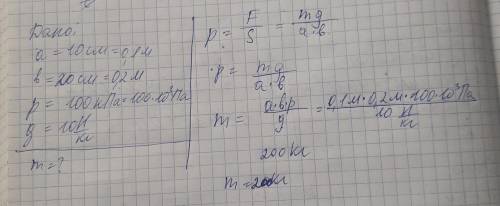 Дано:
a = 10см = 0,1м
b = 20см = 0,2м
p = 100кПа = 100·10³Па
g = 10 Н/кг
m = ?
p = F/S = mg/a·b
p = mg/a·b
m = a·b·p/g = 0,1м·0,2м·100·10³Па/10 Н/кг
200кг
m = 200кг